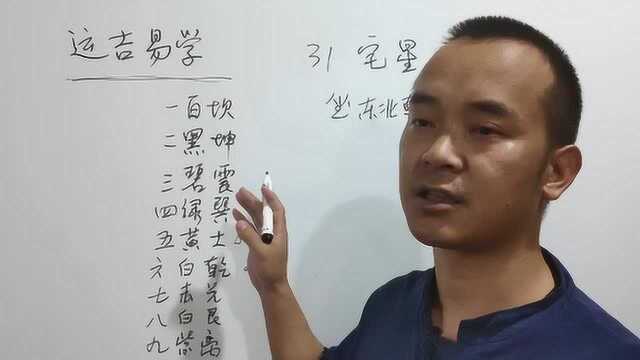 运吉易学
一白坎
二黑坤
三碧震
四绿巽
五黄土
六白乾
七赤兑
八白艮
九紫离
31 宅星
坐东北